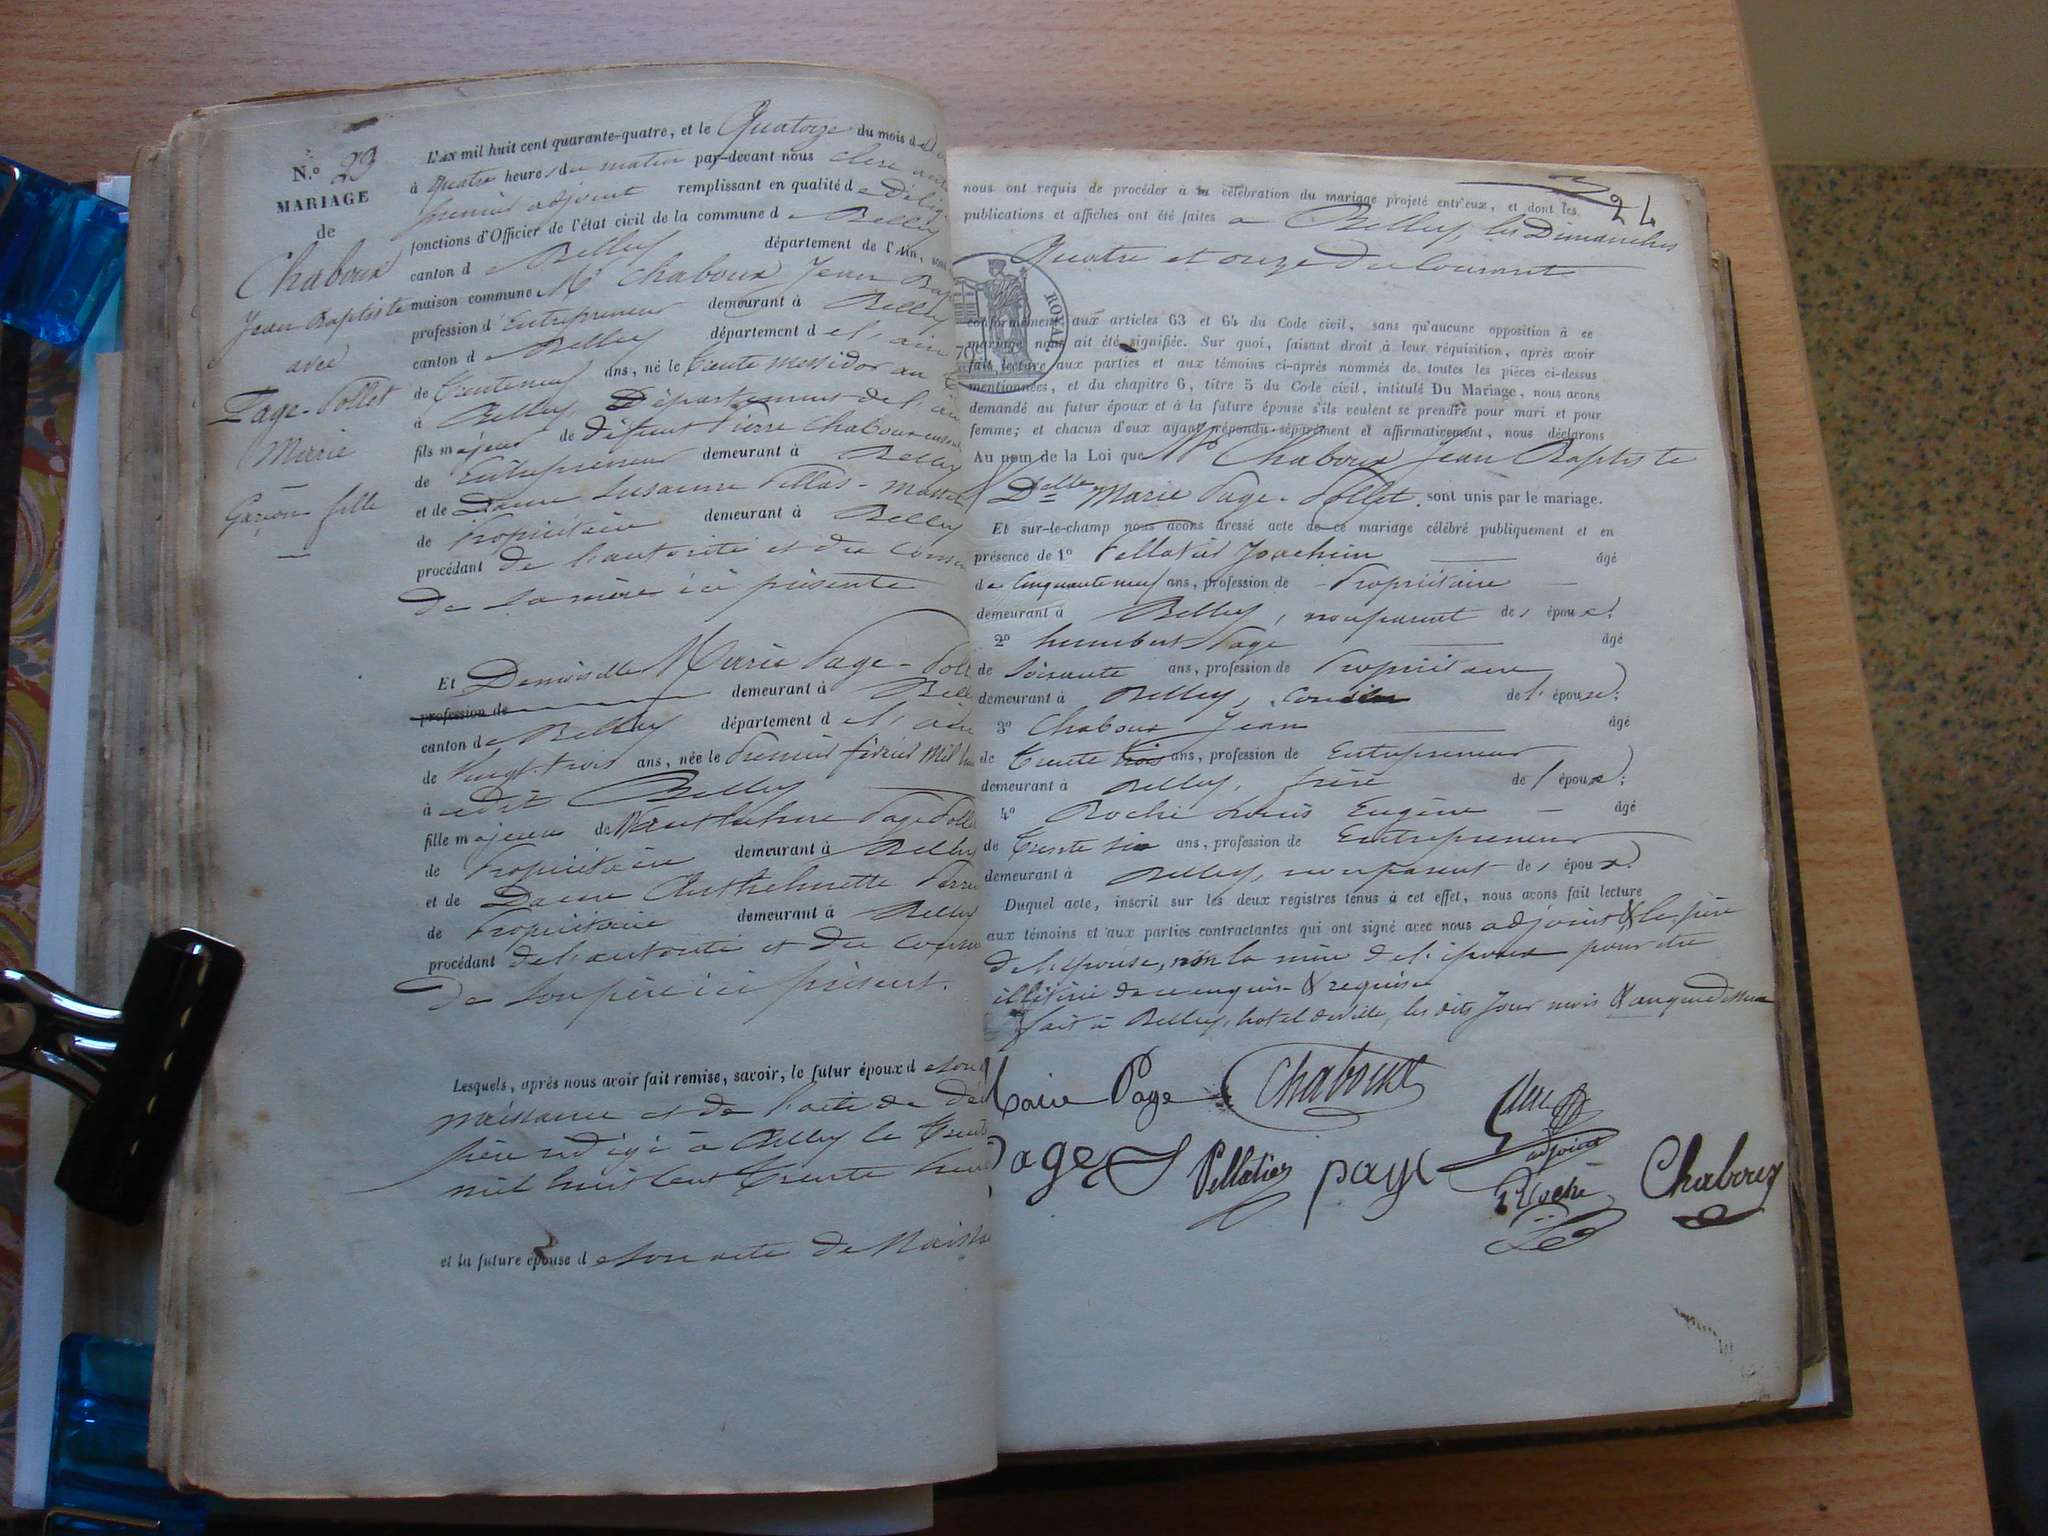 N.o 23
MARIAGE
de
Chaboux
Jean Baptiste
avec
Page-Pollet
Marie
Garçon fille
L'AN mil huit cent quarante-quatre, et le Quatorze du mois d
à quatre heures du matin par-devant nous Clerc
premier adjoint remplissant en qualité de
fonctions d'Officier de l'état civil de la commune de Belley
canton de Belley département de l'Ain,
maison commune Mr Chaboux Jean Bap
profession d'Entrepreneur demeurant à Belley
canton de Belley département de l'ain
de trenteneuf ans, né le trente Messidor an
à Belley, Département de l'ain
fils majeur de défunt Pierre Chaboux
de Entrepreneur demeurant à Belley
et de Dame Susanne
de Propriétaire demeurant à Belley
procédant de l'autorité et du
de sa mère ici présente
Et Demoiselle Marie Page-Poll
profession de demeurant à Bell
canton de Belley département de l'ain
de Vingt-trois ans, née le premier février mil
à Belley
fille majeure de Page Poll
de Propriétaire demeurant à Belley
et de Dame Anthelmette
de Propriétaire demeurant à Belley
procédant de l'autorité et du
de son père ici présent.
Lesquels, après nous avoir fait remise, savoir, le futur époux de son
naissance et de l'acte de dé
père rédigé à Belley le trente
mil huit cent trente
et la future épouse de son acte de Naiss
24
nous ont requis de procéder à la célébration du mariage projeté entr'eux, et dont les
publications et affiches ont été faites à Belley, les Dimanches
Quatre et onze du courant
ROYAL
conformément aux articles 63 et 64 du Code civil, sans qu'aucune opposition à ce
mariage nous ait été signifiée. Sur quoi, faisant droit à leur réquisition, après avoir
fait lecture aux parties et aux témoins ci-après nommés de toutes les pièces ci-dessus
mentionnées, et du chapitre 6, titre 5 du Code civil, intitulé Du Mariage, nous avons
demandé au futur époux et à la future épouse s'ils veulent se prendre pour mari et pour
femme; et chacun d'eux ayant répondu séparément et affirmativement, nous déclarons
Au nom de la Loi que Mr Chaboux Jean Baptiste
Delle Marie Page-Pollet. sont unis par le mariage.
Et sur-le-champ nous avons dressé acte de ce mariage célébré publiquement et en
présence de 1o Pellatier Joachim âgé
de Cinquante neuf ans, profession de Propriétaire
demeurant à Belley, non parent des époux;
2o humbert Page âgé
de Soixante ans, profession de Propriétaire
demeurant à Belley, de l'épouse;
3o Chaboux Jean âgé
de Trente trois ans, profession de Entrepreneur
demeurant à Belley, frère de l'époux;
4o Roche Louis Eugène âgé
de Trente six ans, profession de Entrepreneur
demeurant à Belley, non parent des époux.
Duquel acte, inscrit sur les deux registres tenus à cet effet, nous avons fait lecture
aux témoins et aux parties contractantes qui ont signé avec nous adjoint & le père
de l'épouse, non la mère de l'époux pour être
illitérée de ce enquise & requise
fait à Belley, hotel de ville, les dits jour mois & an que dessus
Marie Page Chaboux Clerc
adjoint
Page Pellatier page Roche Chaboux